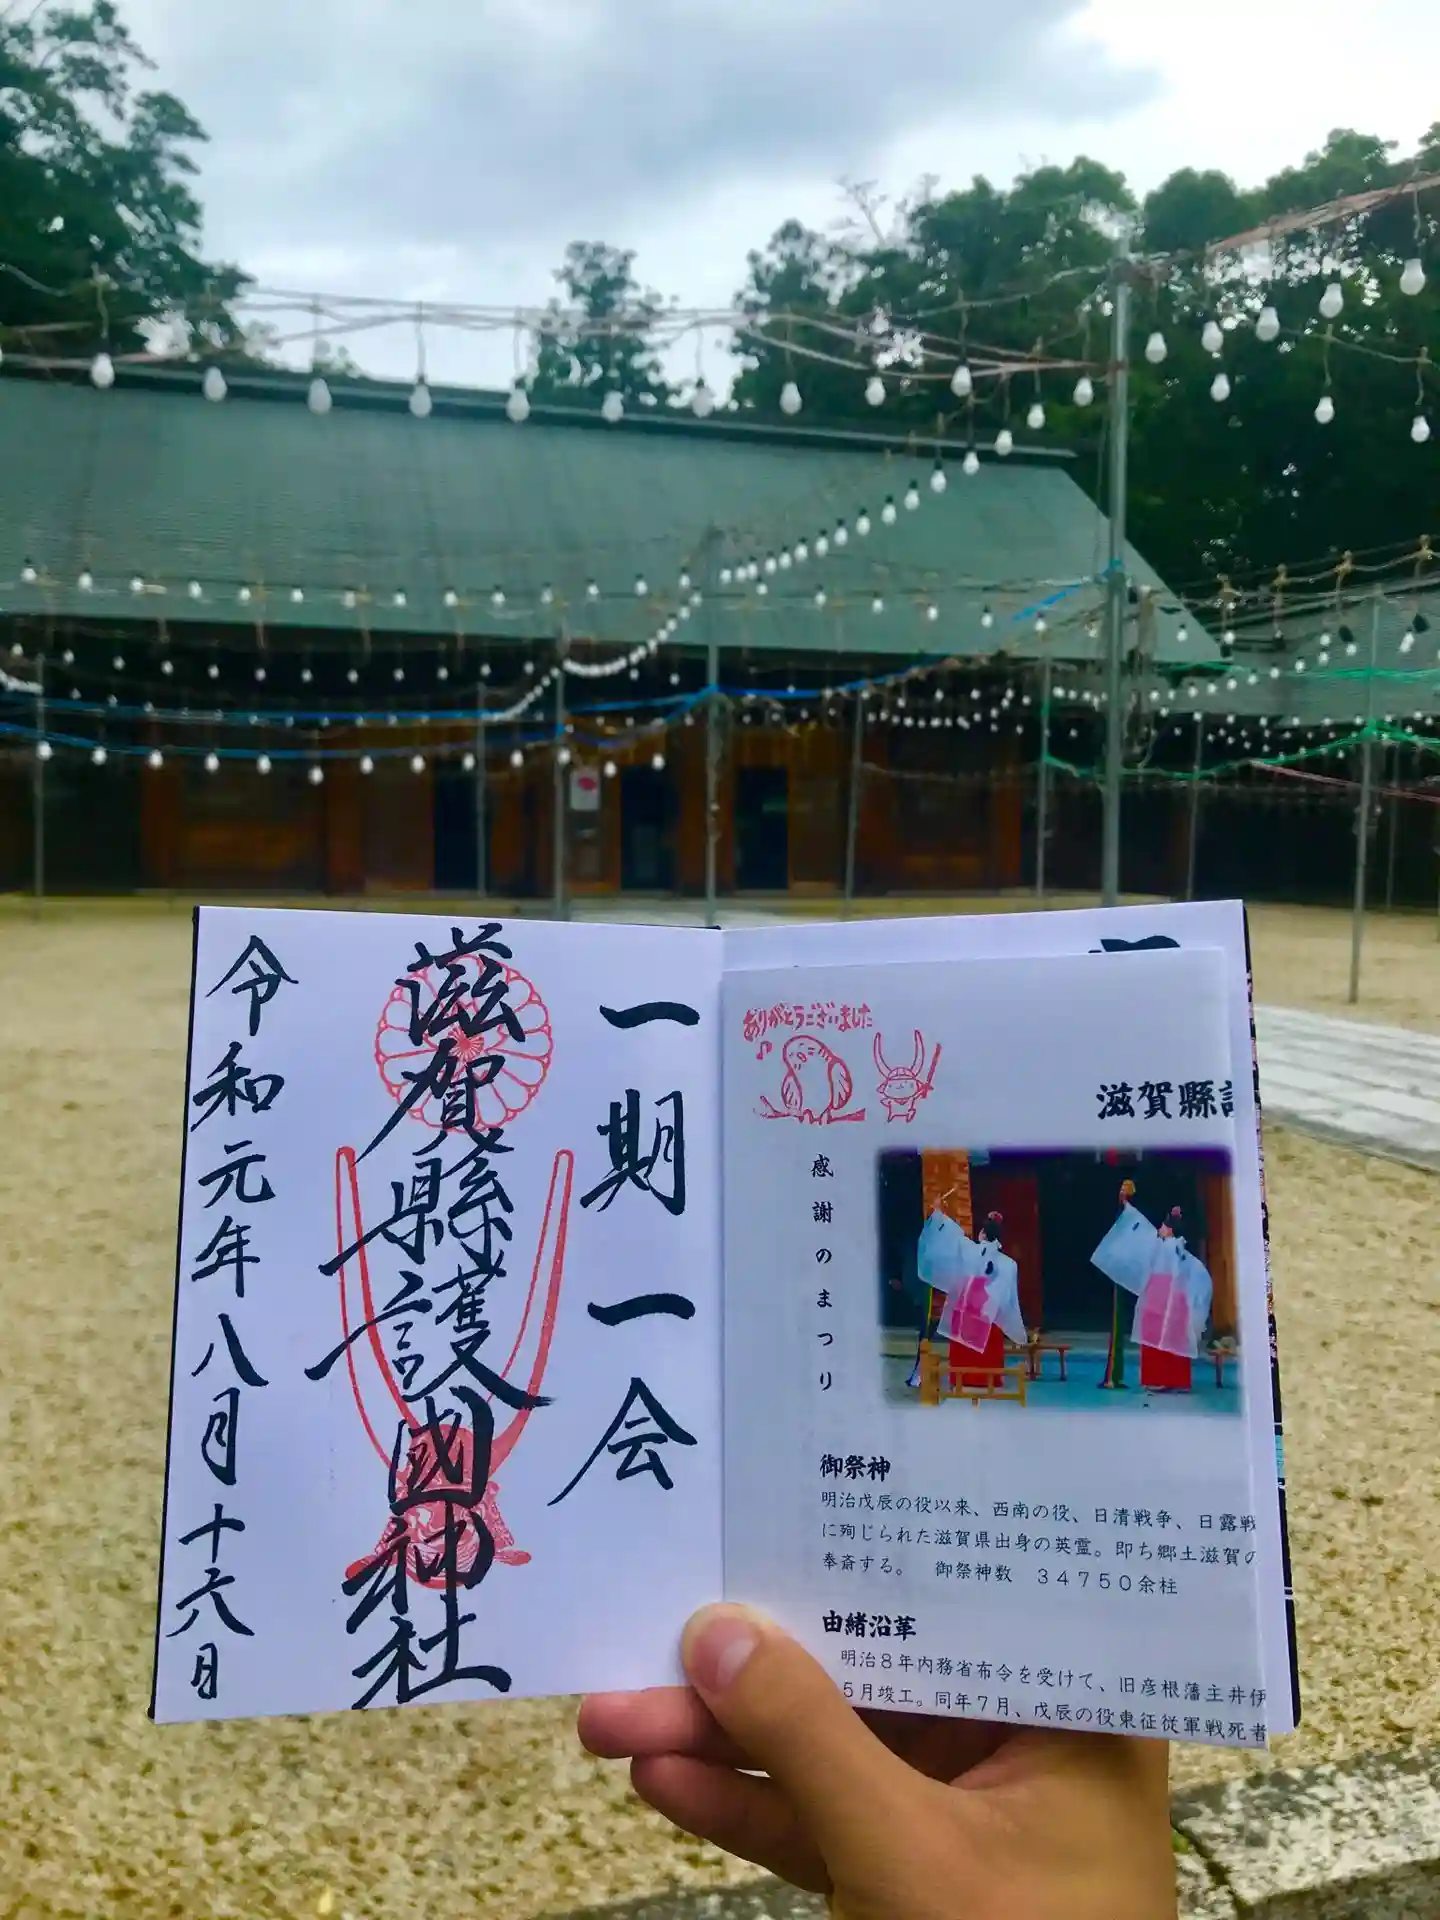 一期一会
滋賀縣護國神社
令和元年八月十六日
ありがとうございました
滋賀縣護
感謝のまつり
御祭神
明治戊辰の役以来、西南の役、日清戦争、日露戦
に殉じられた滋賀県出身の英霊。即ち郷土滋賀の
奉斎する。 御祭神数 34750余柱
由緒沿革
明治8年内務省布令を受けて、旧彦根藩主井伊
5月竣工。同年7月、戊辰の役東征従軍戦死者